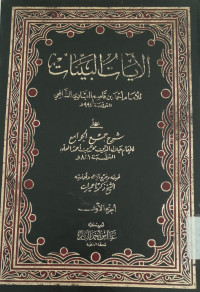 الآيات البينات
للإمام أحمد بن قاسم العبادي الشافعي
المتوفى سنة ٩٩٤هـ
على
شرح جمع الجوامع
للإمام جلال الدين محمد بن أحمد المحلي
المتوفى سنة ٨٦٤هـ
ضبطه وخرج آياته وأحاديثه
الشيخ زكريا عميرات
الجزء الأول
دار الكتب العلمية